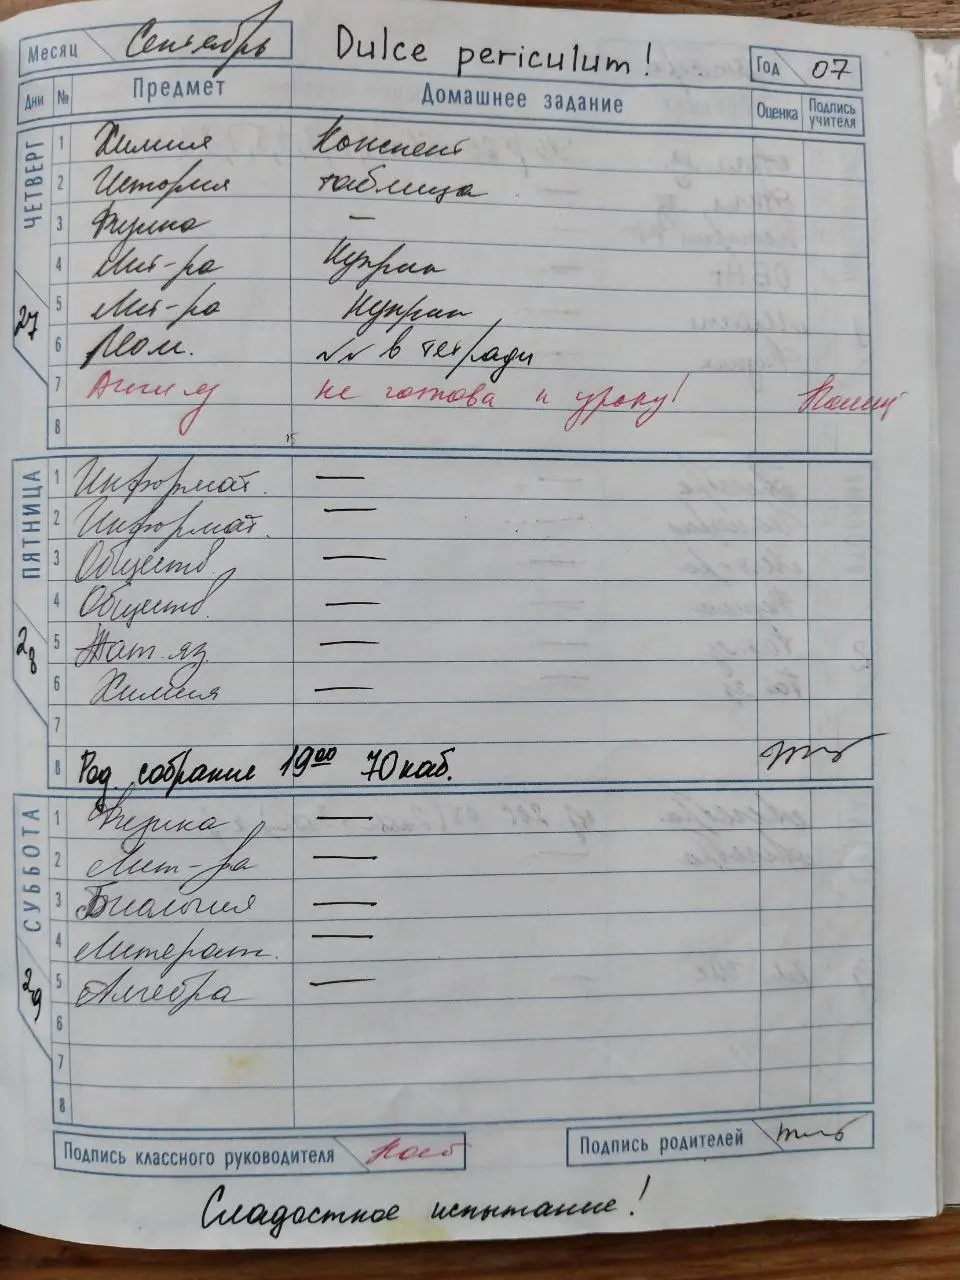 Месяц Сентябрь Dulce periculum! Год 07
Дни № Предмет Домашнее задание Оценка Подпись учителя
ЧЕТВЕРГ 27
1 Химия Конспект
2 История таблица
3 Физика —
4 Лит-ра Куприн
5 Лит-ра Куприн
6 Геом. №№ в тетради
7 Англ яз не готова к уроку!
8
ПЯТНИЦА 28
1 Информат. —
2 Информат. —
3 Обществ. —
4 Обществ. —
5 Тат. яз. —
6 Химия —
7
8 Род. собрание 19⁰⁰ 70 каб.
СУББОТА 29
1 Физика —
2 Лит-ра —
3 Биология —
4 Литерат. —
5 Алгебра —
6
7
8
Подпись классного руководителя Подпись родителей
Сладостное испытание!